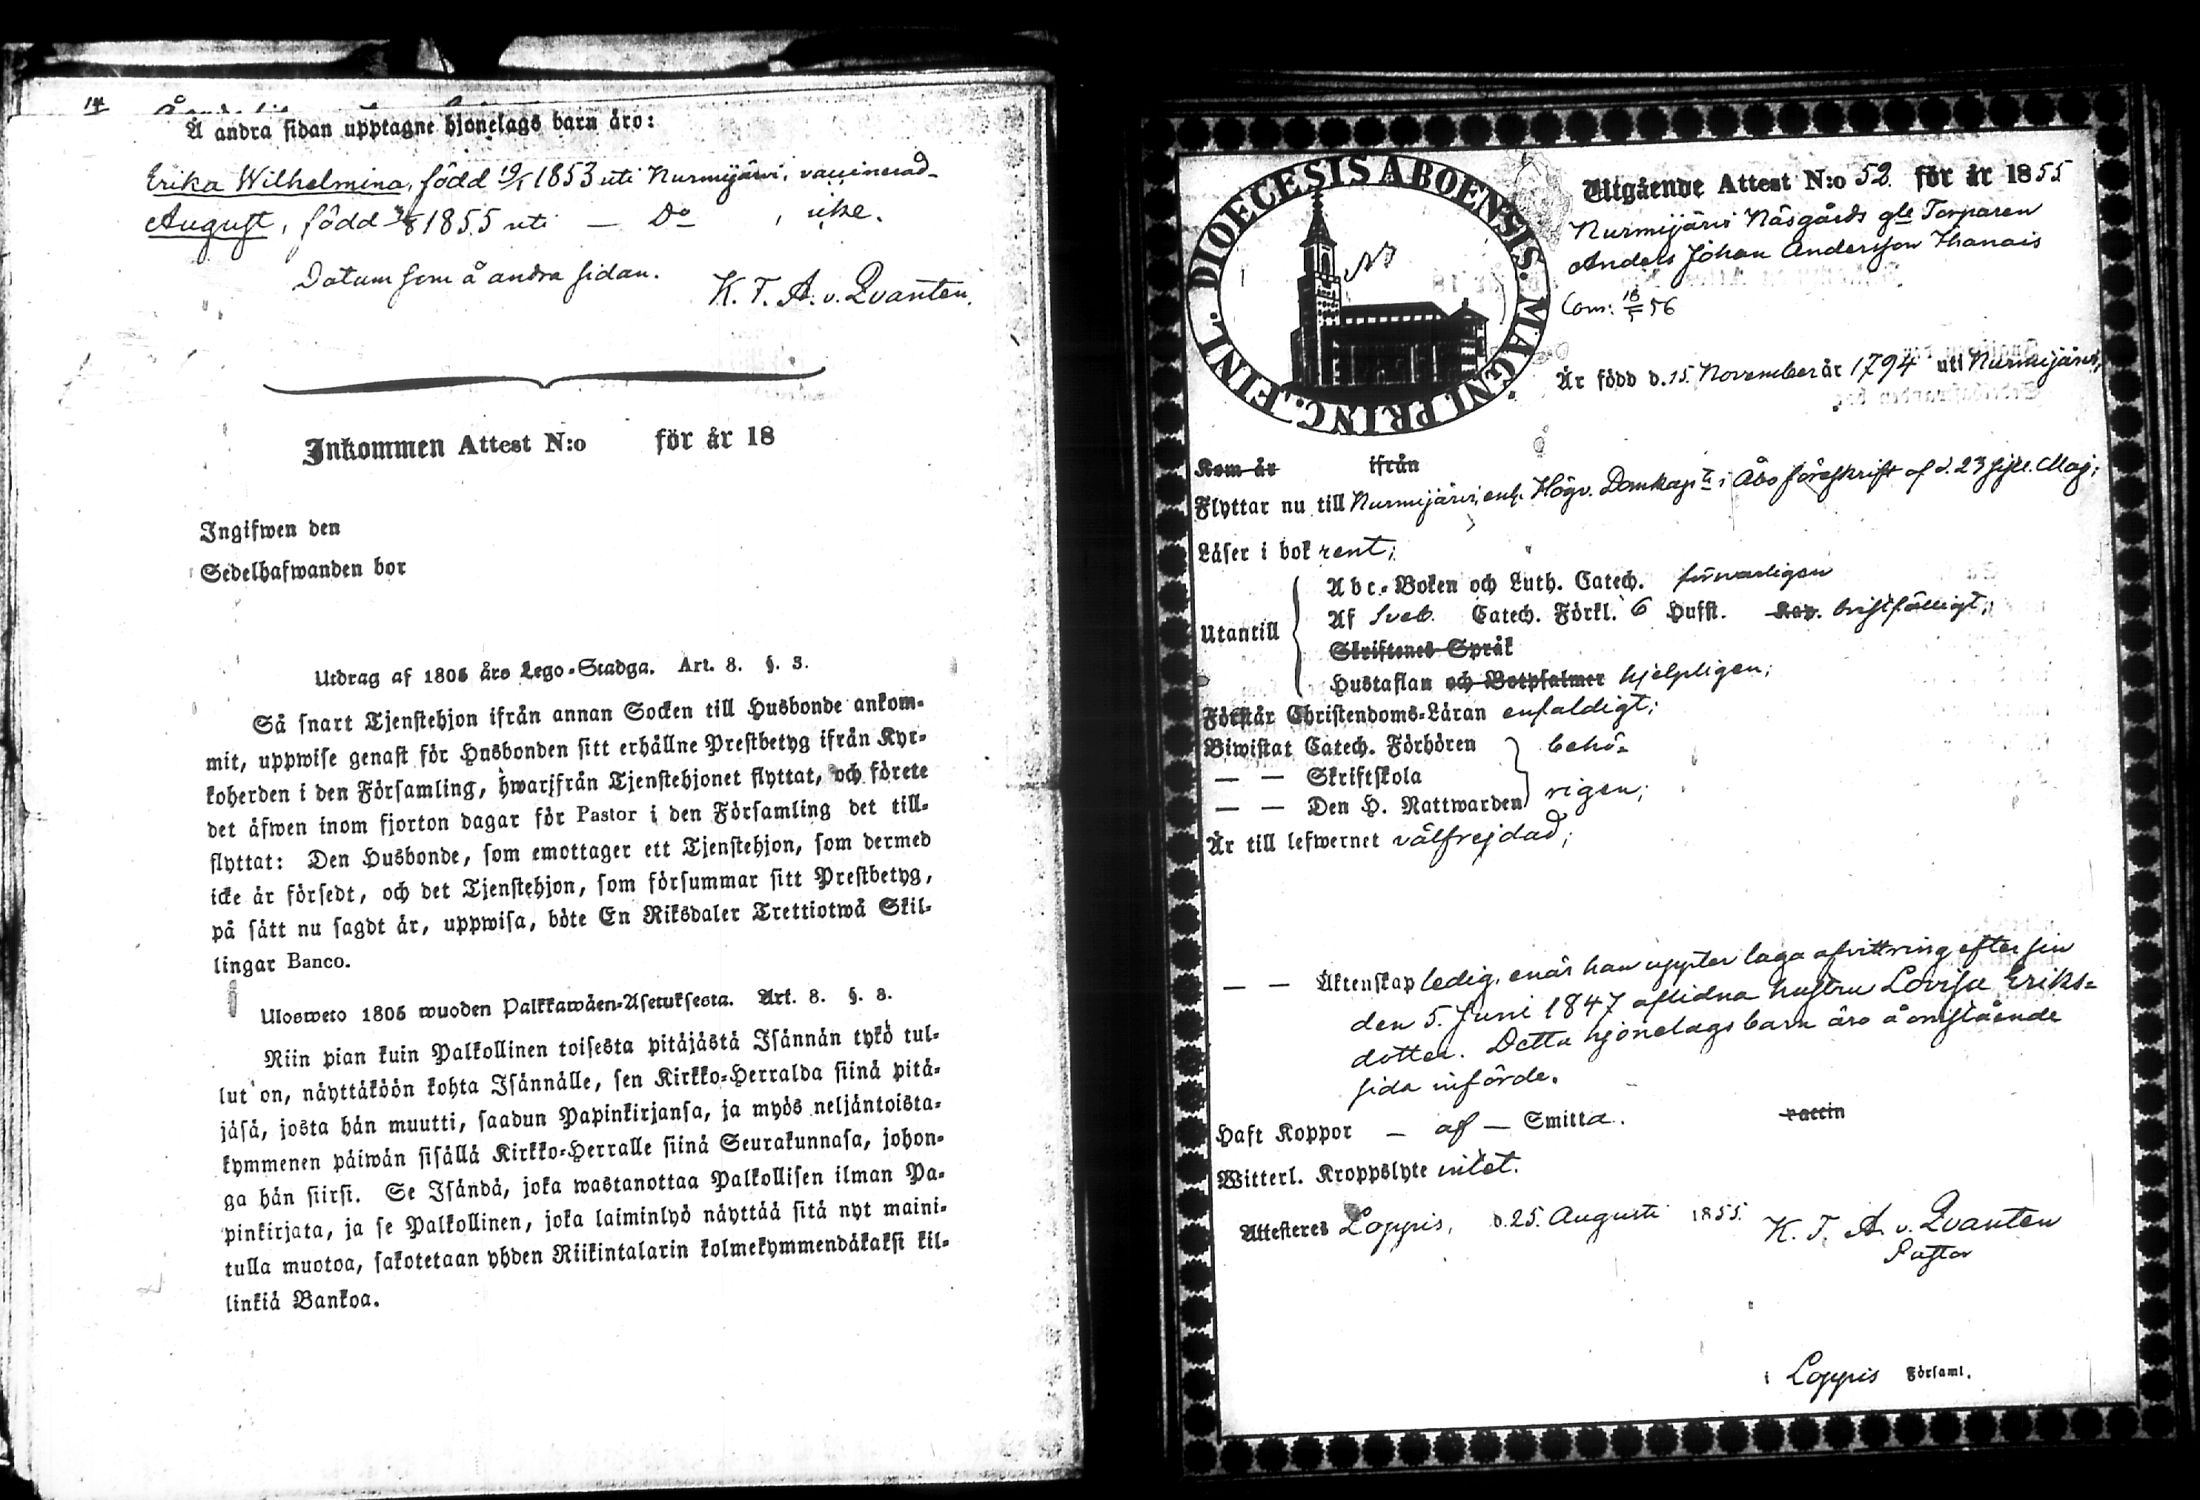 14
Å andra sidan upptagne hjonelags barn äro:
Erika Wilhelmina, född 19/1 1853 uti Nurmijärvi, vaccinerad
August, född 1855 uti — Do , icke.
Datum som å andra sidan.
K. T. A. v. Qvanten.
Inkommen Attest N:o för år 18
Ingifwen den
Sedelhafwanden bor
Utdrag af 1805 års Lego-Stadga. Art. 8. §. 3.
Så snart Tjenstehjon ifrån annan Socken till Husbonde ankom-
mit, uppwise genast för Husbonden sitt erhållne Prestbetyg ifrån Kyr-
koherden i den Församling, hwarjfrån Tjenstehjonet flyttat, och förete
det äfwen inom fjorton dagar för Pastor i den Församling det till-
flyttat: Den Husbonde, som emottager ett Tjenstehjon, som dermed
icke är försedt, och det Tjenstehjon, som försummar sitt Prestbetyg,
på sätt nu sagdt är, uppwisa, böte En Riksdaler Trettiotwå Skil-
lingar Banco.
Ulosweto 1805 wuoden Palkkawäen-Asetuksesta. Art. 8. §. 3.
Niin pian kuin Palkollinen toisesta pitäjästä Isännän tykö tul-
lut on, näyttäköön kohta Isännälle, sen Kirkko-Herralda siinä pitä-
jäsä, josta hän muutti, saadun Papinkirjansa, ja myös neljäntoista-
kymmenen päiwän sisällä Kirkko-Herralle siinä Seurakunnasa, johon-
ga hän siirsi. Se Isändä, joka wastanottaa Palkollisen ilman Pa-
pinkirjata, ja se Palkollinen, joka laiminlyö näyttää sitä nyt maini-
tulla muotoa, sakotetaan yhden Riikintalarin kolmekymmendäkaksi kil-
linkiä Bankoa.
DIOECESIS ABOENSIS. MAGNI PRINC. FINL.
Utgående Attest N:o 52. för år 1855
Nurmijärvi Näsgårds gle Torparen
Anders Johan Andersson Thanais
Com: 18/5 56
Är född d. 15. November år 1794 uti Nurmijärvi,
Kom år ifrån
Flyttar nu till Nurmijärvi, enl. Högv. Domkap. i Åbo föreskrift af d. 23 sistl. Maj;
Läser i bok rent;
Utantill
Abc-Boken och Luth. Catech. försvarligen
Af Sveb. Catech. Förkl. 6 Hufst. Kap. bristfälligt;
Skriftenes Språk
Hustaflan och Botpsalmer hjelpligen;
Förstår Christendoms-Läran enfaldigt;
Biwistat Catech. Förhören behö-
— — Skriftskola
— — Den H. Nattwarden rigen;
Är till lefwernet välfrejdad;
— — Äktenskap ledig, enär han uppter laga afvittring efter sin
den 5. Juni 1847 aflidna hustru Lovisa Eriks-
dotter. Detta hjonelags barn äro å omstående
sida införde.
Haft Koppor — af — Smitta. vaccin
Witterl. Kroppslyte intet.
Attesteres Loppis, d. 25. Augusti 1855.
K. T. A. v. Qvanten
Pastor
i Loppis Församl.